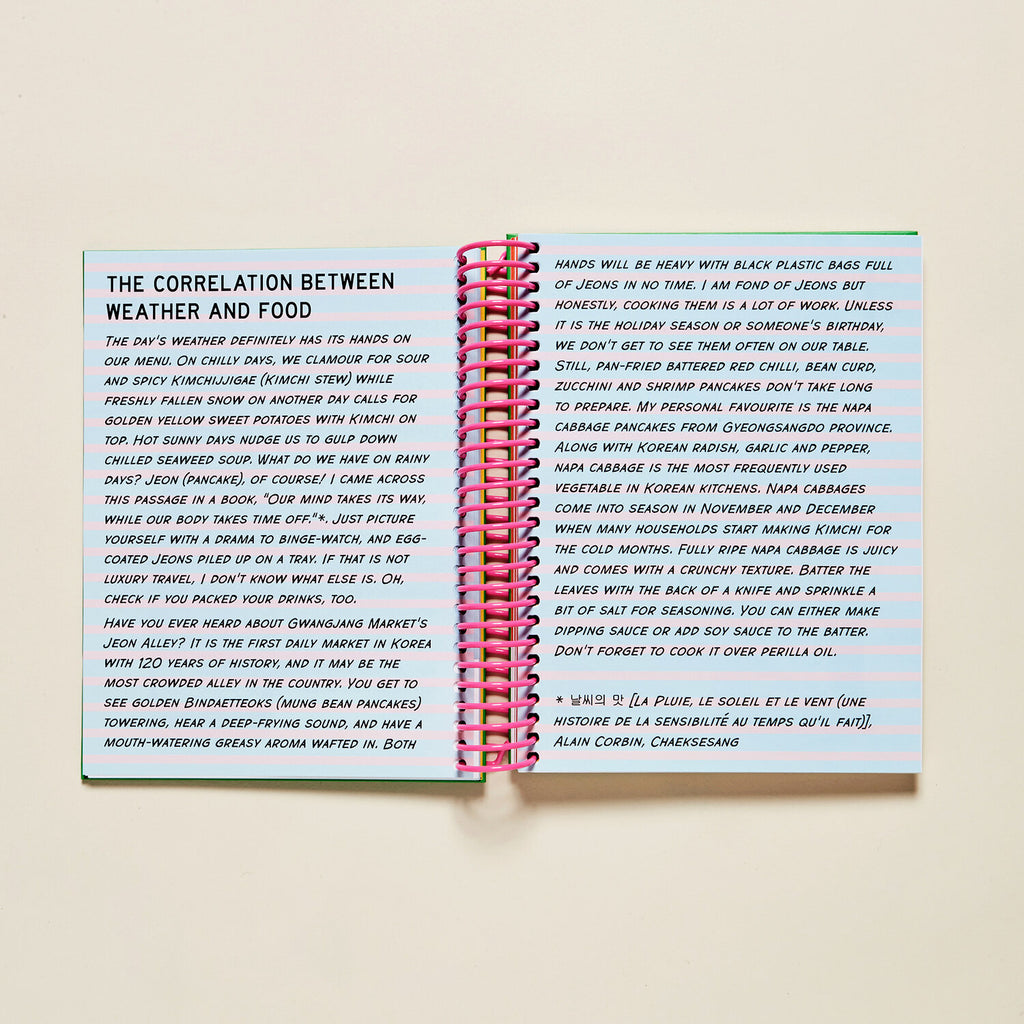 THE CORRELATION BETWEEN
WEATHER AND FOOD
THE DAY'S WEATHER DEFINITELY HAS ITS HANDS ON
OUR MENU. ON CHILLY DAYS, WE CLAMOUR FOR SOUR
AND SPICY KIMCHIJJIGAE (KIMCHI STEW) WHILE
FRESHLY FALLEN SNOW ON ANOTHER DAY CALLS FOR
GOLDEN YELLOW SWEET POTATOES WITH KIMCHI ON
TOP. HOT SUNNY DAYS NUDGE US TO GULP DOWN
CHILLED SEAWEED SOUP. WHAT DO WE HAVE ON RAINY
DAYS? JEON (PANCAKE), OF COURSE! I CAME ACROSS
THIS PASSAGE IN A BOOK, "OUR MIND TAKES ITS WAY,
WHILE OUR BODY TAKES TIME OFF."*. JUST PICTURE
YOURSELF WITH A DRAMA TO BINGE-WATCH, AND EGG-
COATED JEONS PILED UP ON A TRAY. IF THAT IS NOT
LUXURY TRAVEL, I DON'T KNOW WHAT ELSE IS. OH,
CHECK IF YOU PACKED YOUR DRINKS, TOO.
HAVE YOU EVER HEARD ABOUT GWANGJANG MARKET'S
JEON ALLEY? IT IS THE FIRST DAILY MARKET IN KOREA
WITH 120 YEARS OF HISTORY, AND IT MAY BE THE
MOST CROWDED ALLEY IN THE COUNTRY. YOU GET TO
SEE GOLDEN BINDAETTEOKS (MUNG BEAN PANCAKES)
TOWERING, HEAR A DEEP-FRYING SOUND, AND HAVE A
MOUTH-WATERING GREASY AROMA WAFTED IN. BOTH
HANDS WILL BE HEAVY WITH BLACK PLASTIC BAGS FULL
OF JEONS IN NO TIME. I AM FOND OF JEONS BUT
HONESTLY, COOKING THEM IS A LOT OF WORK. UNLESS
IT IS THE HOLIDAY SEASON OR SOMEONE'S BIRTHDAY,
WE DON'T GET TO SEE THEM OFTEN ON OUR TABLE.
STILL, PAN-FRIED BATTERED RED CHILLI, BEAN CURD,
ZUCCHINI AND SHRIMP PANCAKES DON'T TAKE LONG
TO PREPARE. MY PERSONAL FAVOURITE IS THE NAPA
CABBAGE PANCAKES FROM GYEONGSANGDO PROVINCE.
ALONG WITH KOREAN RADISH, GARLIC AND PEPPER,
NAPA CABBAGE IS THE MOST FREQUENTLY USED
VEGETABLE IN KOREAN KITCHENS. NAPA CABBAGES
COME INTO SEASON IN NOVEMBER AND DECEMBER
WHEN MANY HOUSEHOLDS START MAKING KIMCHI FOR
THE COLD MONTHS. FULLY RIPE NAPA CABBAGE IS JUICY
AND COMES WITH A CRUNCHY TEXTURE. BATTER THE
LEAVES WITH THE BACK OF A KNIFE AND SPRINKLE A
BIT OF SALT FOR SEASONING. YOU CAN EITHER MAKE
DIPPING SAUCE OR ADD SOY SAUCE TO THE BATTER.
DON'T FORGET TO COOK IT OVER PERILLA OIL.
* 날씨의 맛 [LA PLUIE, LE SOLEIL ET LE VENT (UNE
HISTOIRE DE LA SENSIBILITÉ AU TEMPS QU'IL FAIT)],
ALAIN CORBIN, CHAEKSESANG